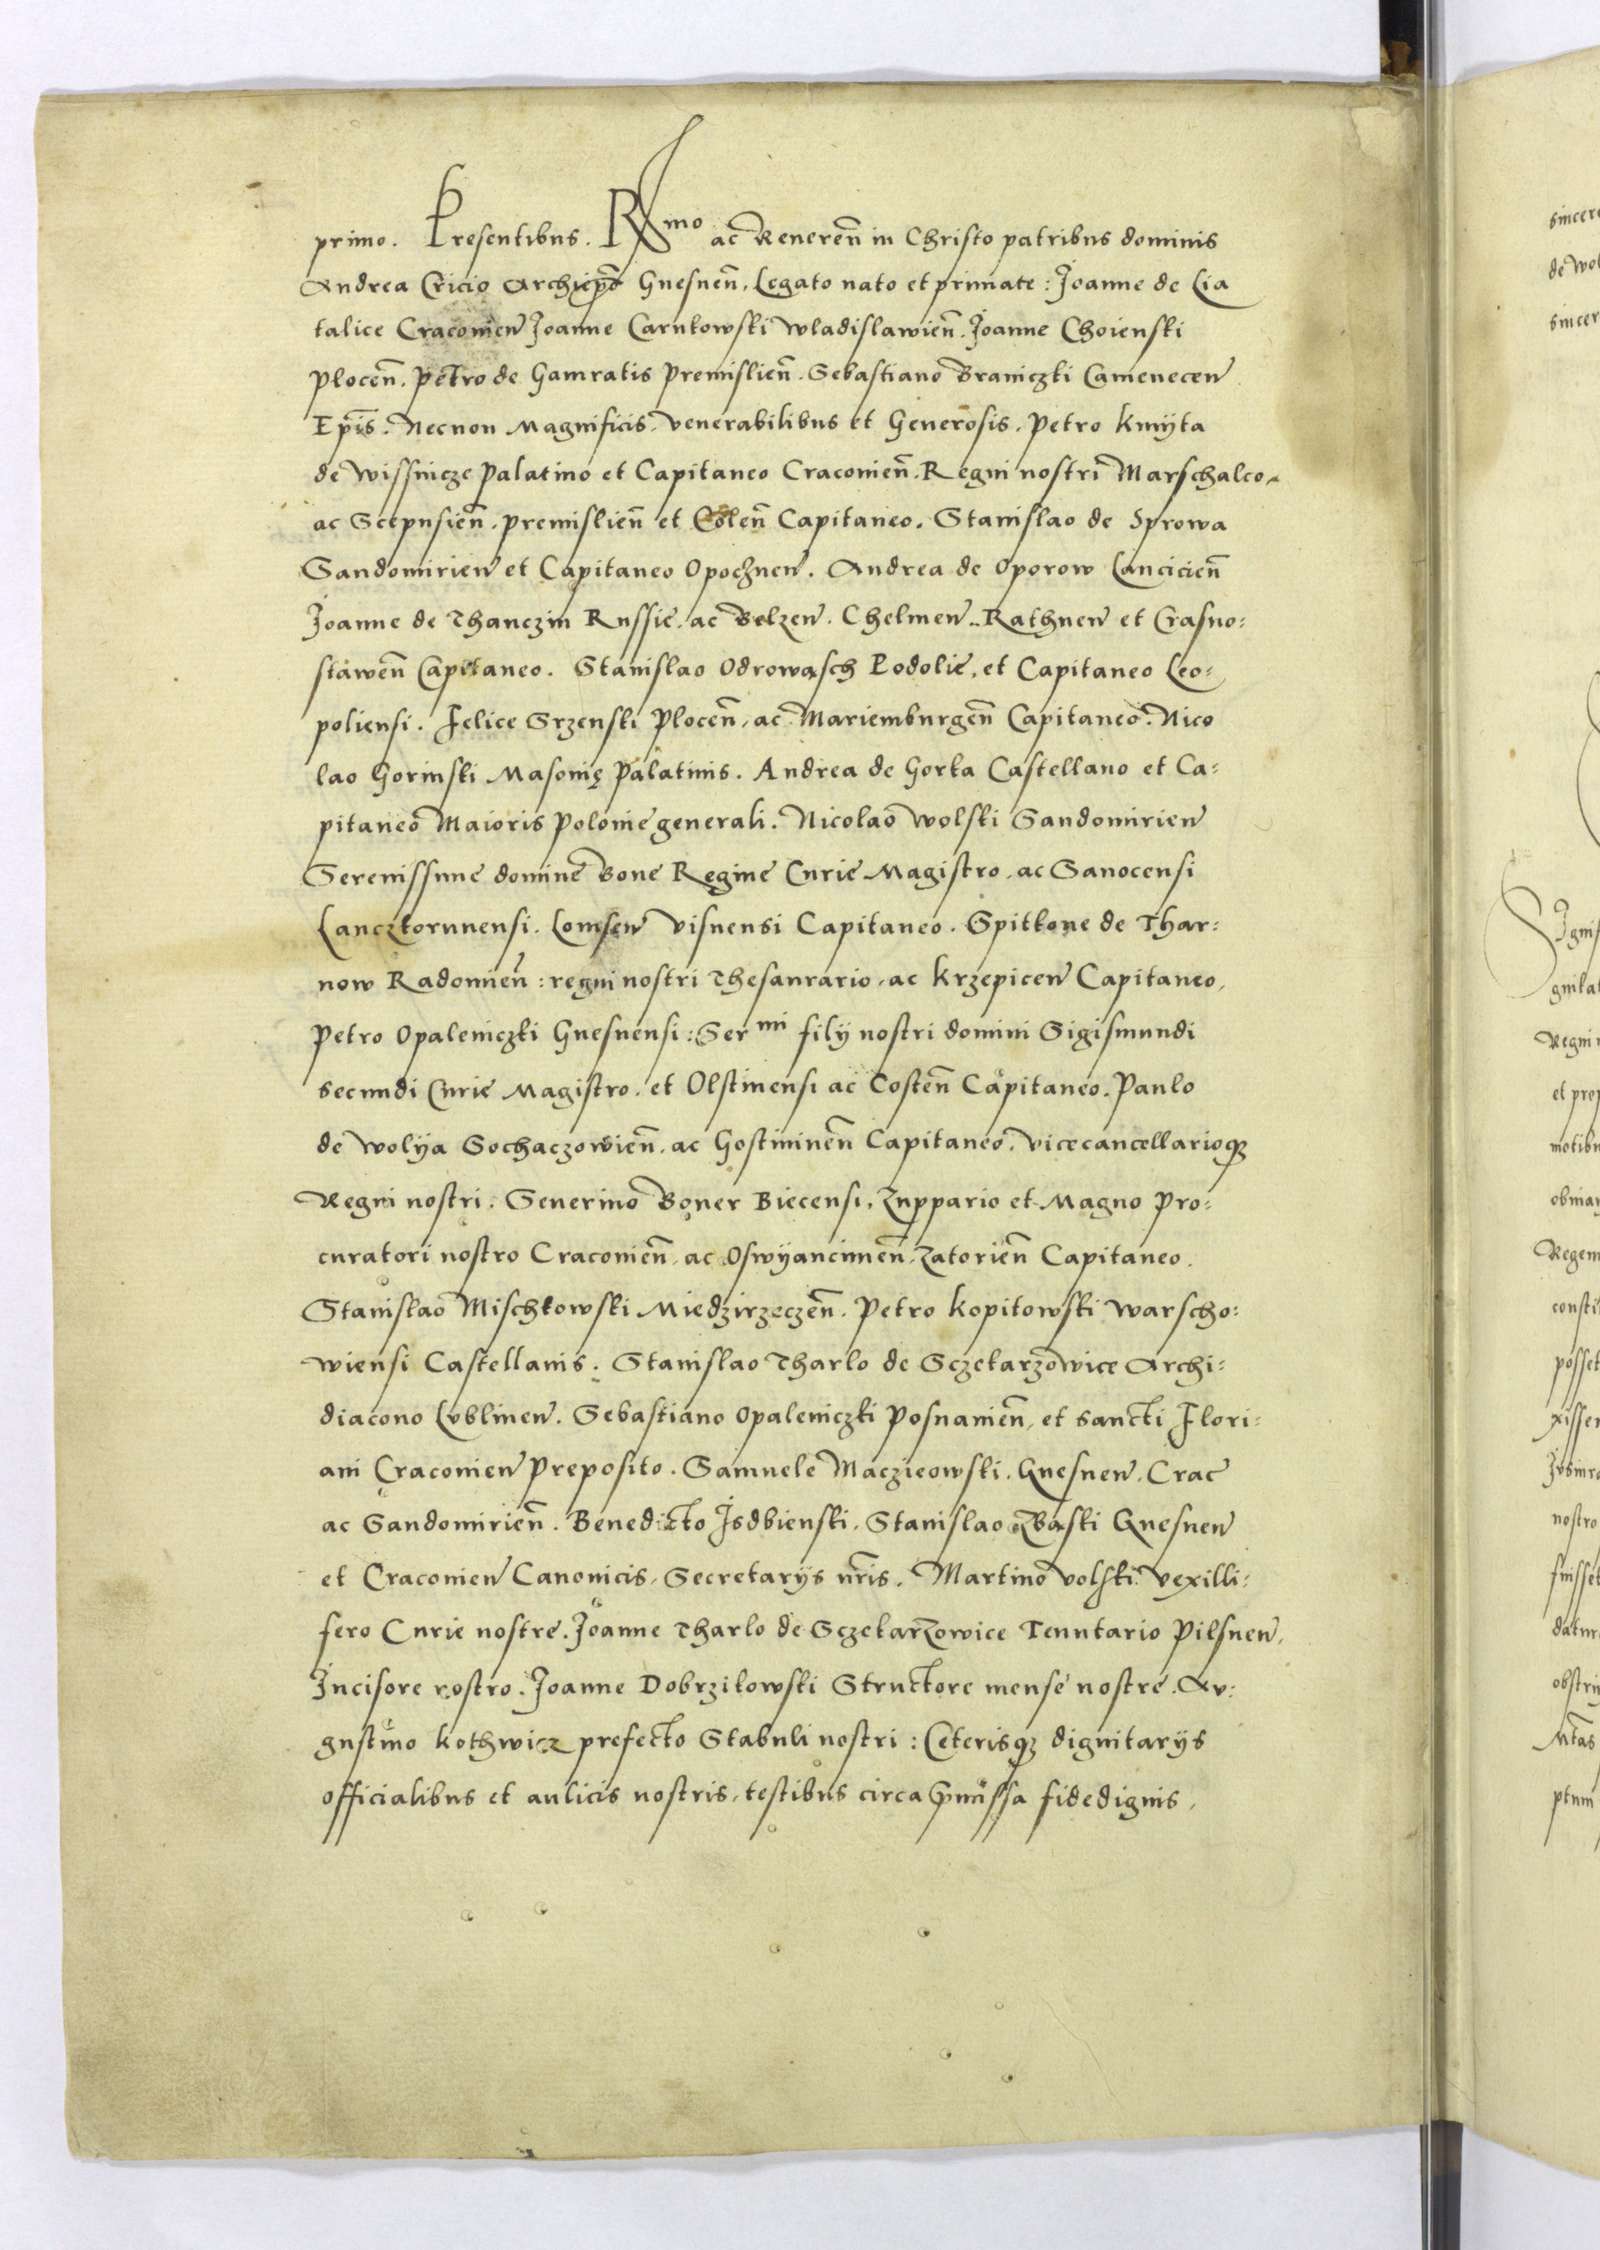 primo. Presentibus. R^mo ac Reveren̄ in Christo patribus dominis
Andrea Cricio Archiep̄o Gnesnen̄, Legato nato et primate: Joanne de Lia
talice Cracovien̄ Joanne Carnkowski wladislawien̄. Joanne Choienski
plocen̄. Petro de Gamratis Premislien̄. Sebastiano Braniczki Camenecen̄
Ep̄is. Necnon Magnificis, venerabilibus et Generosis. Petro kmÿta
de wissnicze Palatino et Capitaneo Cracovien̄. Regni nostri Marschalco,
ac Scepusien̄. premislien̄ et Colen̄ Capitaneo. Stanislao de Sprowa
Sandomirien̄ et Capitaneo Opochnen̄. Andrea de Oporow Lancicien̄
Joanne de Thanczin Russie. ac Belzen̄. Chelmen̄. Rathnen̄ et Crasno:
stawen̄ Capitaneo. Stanislao Odrowasch Podolie, et Capitaneo Leo:
poliensi. Felice Srzenski Plocen̄, ac Mariemburgen̄ Capitaneo. Nico
lao Gorinski Masovię Palatinis. Andrea de Gorka Castellano et Ca:
pitaneo Maioris Polonie generali. Nicolao wolski Sandomirien̄
Serenissime domine Bone Regine Curie Magistro, ac Sanocensi
Lancztorunensi. Lomsen̄ visnensi Capitaneo. Spitkone de Thar:
now Radomien̄: regni nostri Thesaurario, ac krzepicen̄ Capitaneo,
Petro Opaleniczki Gnesnensi: Ser^mi filÿ nostri domini Sigismundi
secundi Curie Magistro, et Olstinensi ac Costen̄ Capitaneo. Paulo
de wolÿa Sochaczovien̄, ac Gostininen̄ Capitaneo. vicecancellarioq3
Regni nostri. Severino Boner Biecensi, Zuppario et Magno Pro:
curatori nostro Cracovien̄, ac Oswÿancimen̄, Zatorien̄ Capitaneo.
Stanislao Mischkowski Miedzirzeczen̄. Petro kopitowski warscho:
wiensi Castellanis. Stanislao Tharlo de Sczekarzowice Archi:
diacono Lublinen̄. Sebastiano Opaleniczki Posnanien̄, et sancti Flori:
ani Cracovien̄ Preposito. Samuele Maczieowski. Gnesnen̄. Crac̄
ac Sandomirien̄. Benedicto Jsdbienski. Stanislao Gnesnen̄
et Cracovien̄ Canonicis, Secretarÿs nr̄is. Martino volski vexilli:
fero Curie nostre. Joanne Tharlo de Sczekarzowice Tenutario Pilsnen̄,
Jncisore nostro. Joanne Dobrzikowski Structore mense nostre. Au:
gustino kothwicz prefecto Stabuli nostri: Ceterisq3 dignitarÿs
officialibus et aulicis nostris, testibus circa p̄missa fidedignis,